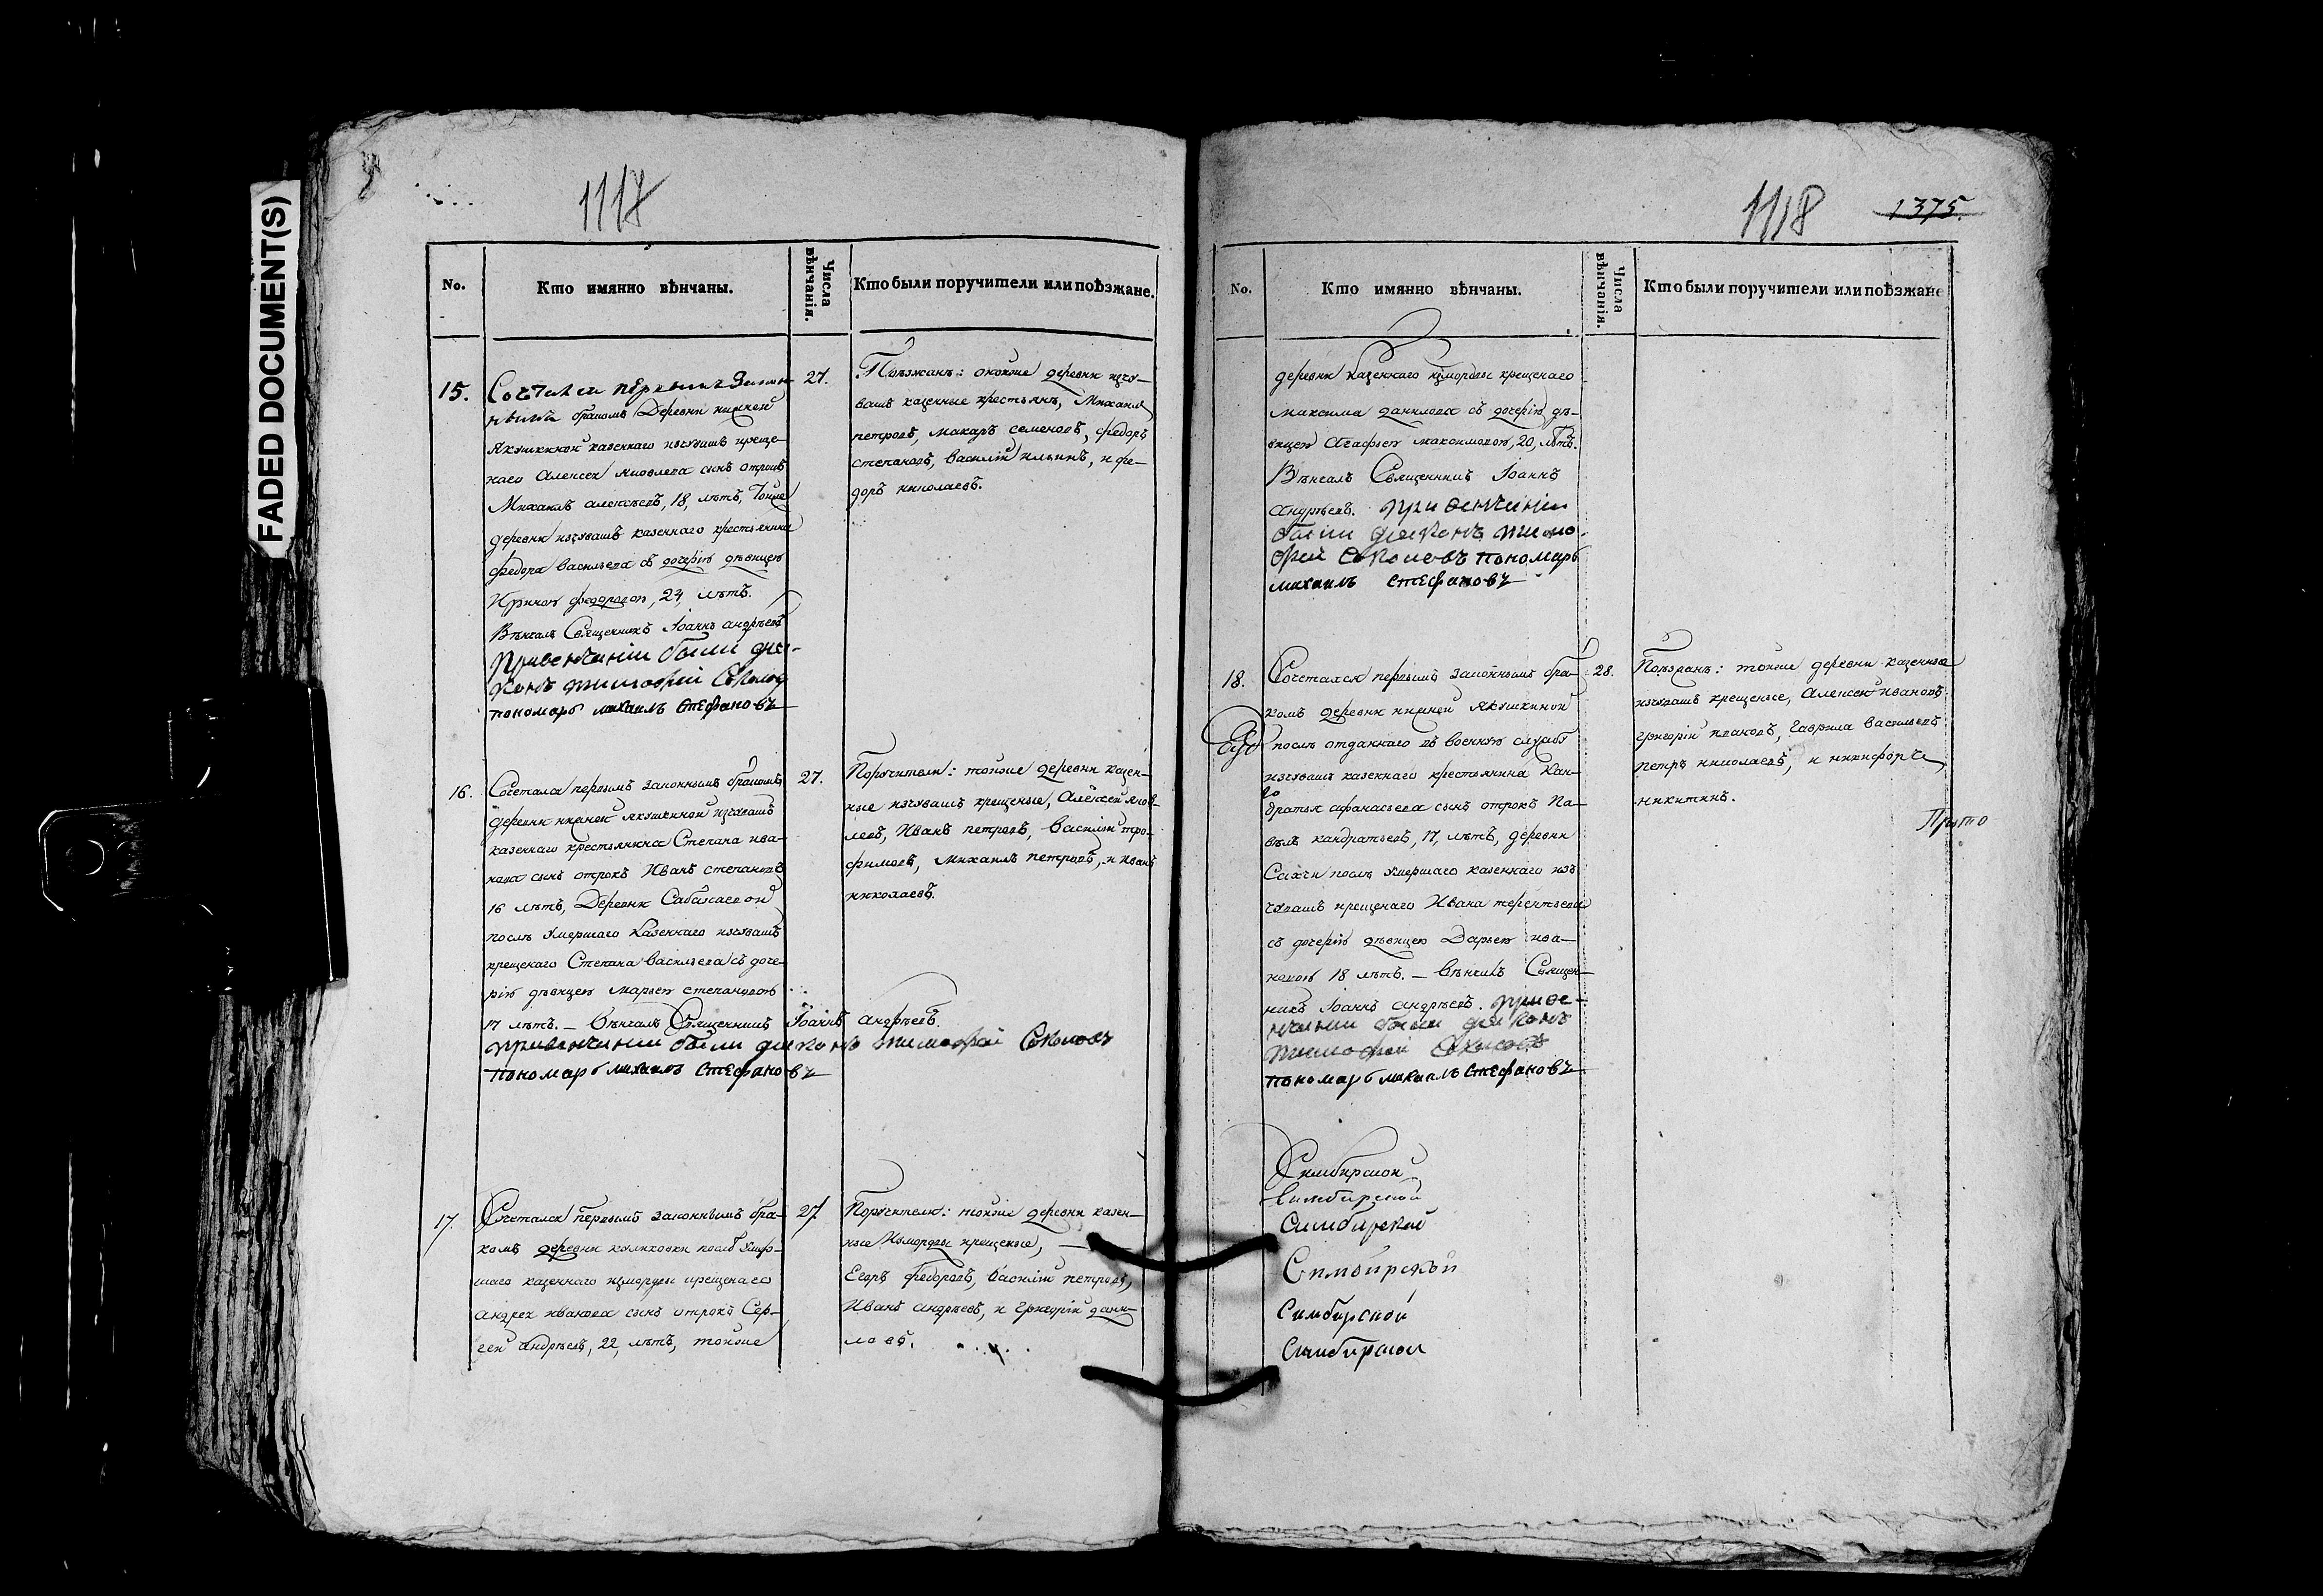 FADED DOCUMENT(S)
1117
No.
Кто имянно вѣнчаны.
Числа вѣнчанія.
Кто были поручители или поѣзжане.
15.
Сочтался первымъ закон-
нымъ бракомъ Деревни нижней
Якушкиной казеннаго изчувашъ креще-
наго Алексея Яковлева сынъ отрокъ
Михаилъ алексѣевъ, 18, лѣтъ, Тойже
деревни изчувашъ казеннаго крестьянина
Федора васильева съ дочерью дѣвицею
Ириною федоровою, 24, лѣтъ.
Вѣнчалъ Священникъ Іоаннъ андрѣевъ
при венчании были дия-
конъ тимофей Соколов
пономарь михаилъ Стефановъ
27.
Поѣзжанѣ: оноже деревни изчу-
вашъ казенные крестьянѣ, Михаилъ
петровъ, макаръ семеновъ, федоръ
степановъ, василій ильинъ, и фе-
доръ николаевъ.
16.
Сочетался первымъ законнымъ бракомъ
деревни нижной якушкиной изчувашъ
казеннаго крестьянина Степана ива-
нова сынъ отрокъ Иванъ степановъ
16 лѣтъ, Деревни Сабакаевой
послѣ умершаго казеннаго изчувашъ
крещенаго Степана васильева съ доче-
рію дѣвицею марьею степановою
17 лѣтъ. — Вѣнчалъ Священникъ Іоаннъ андрѣевъ.
при венчании были диаконъ тимофей Соколовъ
пономарь михаилъ Стефановъ
27.
Поручители: тойже деревни казен-
ные изчувашъ крещеные, Алексей яков-
левъ, Иванъ петровъ, василій тро-
фимовъ, михаилъ петровъ, и иванъ
николаевъ.
17.
Сочетался первымъ законнымъ бра-
комъ деревни куликовки послѣ умер-
шаго казеннаго измордвы крещенаго
андрея иванова сынъ отрокъ Сер-
гей андрѣевъ, 22, лѣтъ, тойже
27.
Поручители: тойже деревни казен-
ные измордвы крещеные, —
Егоръ федоровъ, василій петровъ,
Иванъ андрѣевъ, и григорій дани-
ловъ.
1118
1375
No.
Кто имянно вѣнчаны.
Числа вѣнчанія.
Кто были поручители или поѣзжане
деревни казеннаго измордвы крещенаго
максима данилова съ дочерію дѣ-
вицею агафьею максимовою, 20, лѣтъ.
Вѣнчалъ Священникъ Іоаннъ
андрѣевъ. при венчании
были диаконъ тимо-
фей Соколовъ пономарь
михаилъ Стефановъ
18.
Сочетался первымъ законнымъ бра-
комъ деревни нижней якушкиной
послѣ отданнаго въ военную службу
изчувашъ казеннаго крестьянина Кан-
дратья афанасьева сынъ отрокъ Па-
велъ кандратьевъ, 17, лѣтъ, деревни
Сахчи послѣ умершаго казеннаго изъ
чувашъ крещенаго Ивана терентьева
съ дочерію дѣвицею Дарьею ива-
новою 18 лѣтъ. — вѣнчалъ Священ-
никъ Іоаннъ андрѣевъ. при ве-
нчании были диаконъ
тимофей Соколовъ
пономарь михаилъ Стефановъ
28.
Поѣзжанѣ: тойже деревни казенные
изчувашъ крещеные, Алексей ивановъ
григорій ивановъ, гаврила васильевъ
петръ николаевъ, и никифоръ
никитинъ.
Симбирской
Симбирской
Симбирской
Симбирской
Симбирской
Симбирской